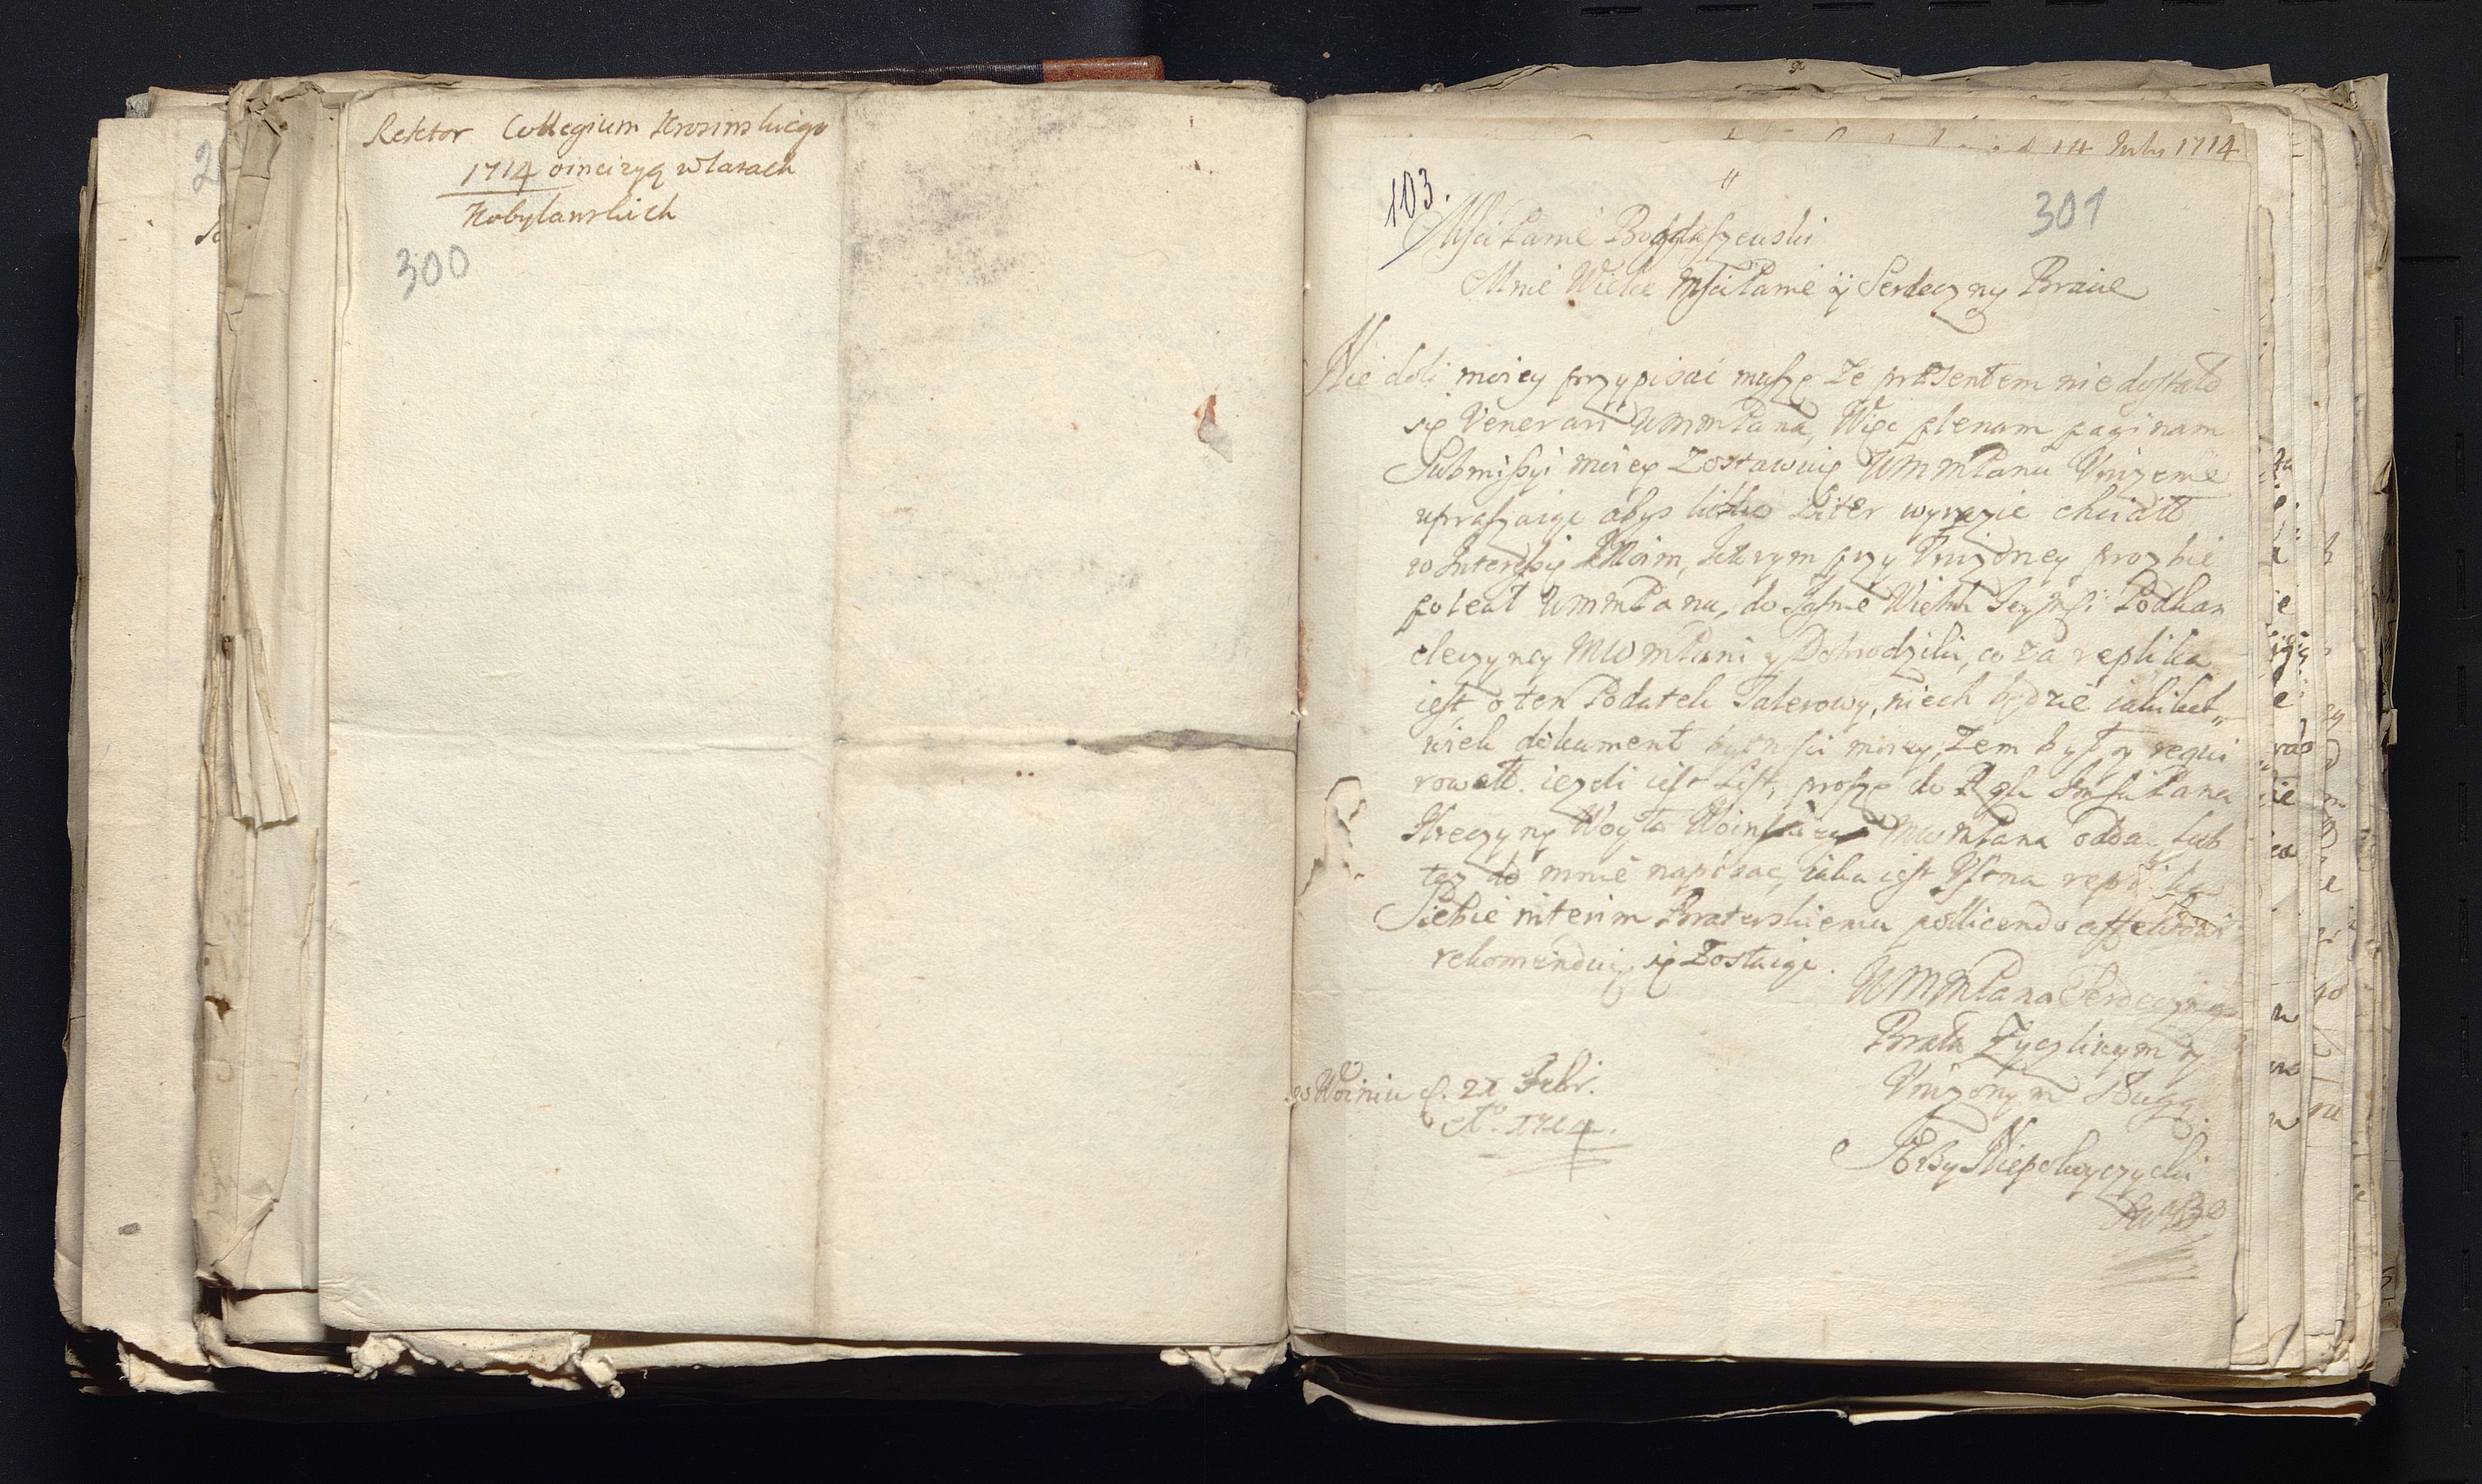 Rektor Collegium Krosinskiego
1714 oincizyą w lasach
Kobylanskich
300
14 July 1714
103.
301
Mści Panie Bogdaszewski
Mnie Wielce Mści Panie ÿ Serdeczny Bracie
Nie doli moiey przypisać muszę Ze præsentem nie dostało
się Venerari WMMPana, Więc plenam paginam
Submissyi moiey Zostawuię WMMPanu Vniżenie
upraszaiąc abys kilka Liter wyrazić chciałł
w Interessie Moim, którym przy Vniżoney prozbie
polecał WMMPanu, do Jasnie Wielm Jeymsci Podkan
clerzyney MWMPani y Dobrodziki, co za replika
iest, o ten Podatek Talerowy, niech będzie iakikol„
wiek dokument bytnosci moiey, Zem był y requi
rowałł. iezeli iest List, proszę do Rąk Imsci Pana
Woyta MWMPana odda lub
tez do mnie napisac, iaka iest Ystna replika
Siebie interim Braterskiemu pollicendo affektowi
rekomenduię się Zostaiąc.
WMMPana Serdeczneg
Brata Zyczliwym y
Vniżonym Sługą.
Niepokoyczycki
w Woiniu d. 21 Febr.
Ao. 1714.